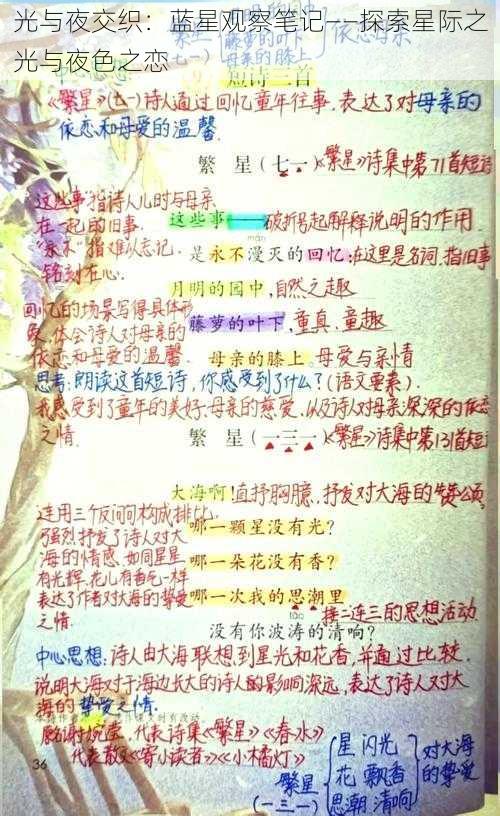 光与夜交织：蓝星观察笔记——探索星际之
光与夜色之恋
短诗三首
《繁星》(七一)诗人通过回忆童年往事,表达了对母亲的
依恋和母爱的温馨.
繁 星（七一）《繁星》诗集中第71首短诗
"这些事"指诗人儿时与母亲
在一起的旧事.
这些事——破折号起解释说明的作用
"永不"指难以忘记.
铭刻在心.
是永不漫灭的回忆:在这里是名词.指旧事
月明的园中,自然之趣
回忆的场景写得具体形
象.体会诗人对母亲的
依恋和母爱的温馨
藤萝的叶下,童真.童趣
母亲的膝上.母爱与亲情
思考:朗读这首短诗,你感受到了什么?(语文要素).
我感受到了童年的美好.母亲的慈爱.以及诗人对母亲深深的依恋
之情.
繁 星（一三一）《繁星》诗集中第131首短
大海啊!直抒胸臆.抒发对大海的赞颂
连用三个反问句构成排比.
强烈抒发了诗人对大
海的情感.如同星星
有光辉.花儿有香气一样
表达了作者对大海的挚爱
之情.
哪一颗星没有光？
哪一朵花没有香？
哪一次我的思潮里
接二连三的思想活动
没有你波涛的清响？
中心思想:诗人由大海联想到星光和花香,并通过比较.
说明大海对于海边长大的诗人的影响深远,表达了诗人对大
海的挚爱之情.
代表诗集《繁星》《春水》
代表散文《寄小读者》《小橘灯》
36
繁星
(一三一)
星 闪光
花 飘香
思潮 清响
对大海
的挚爱